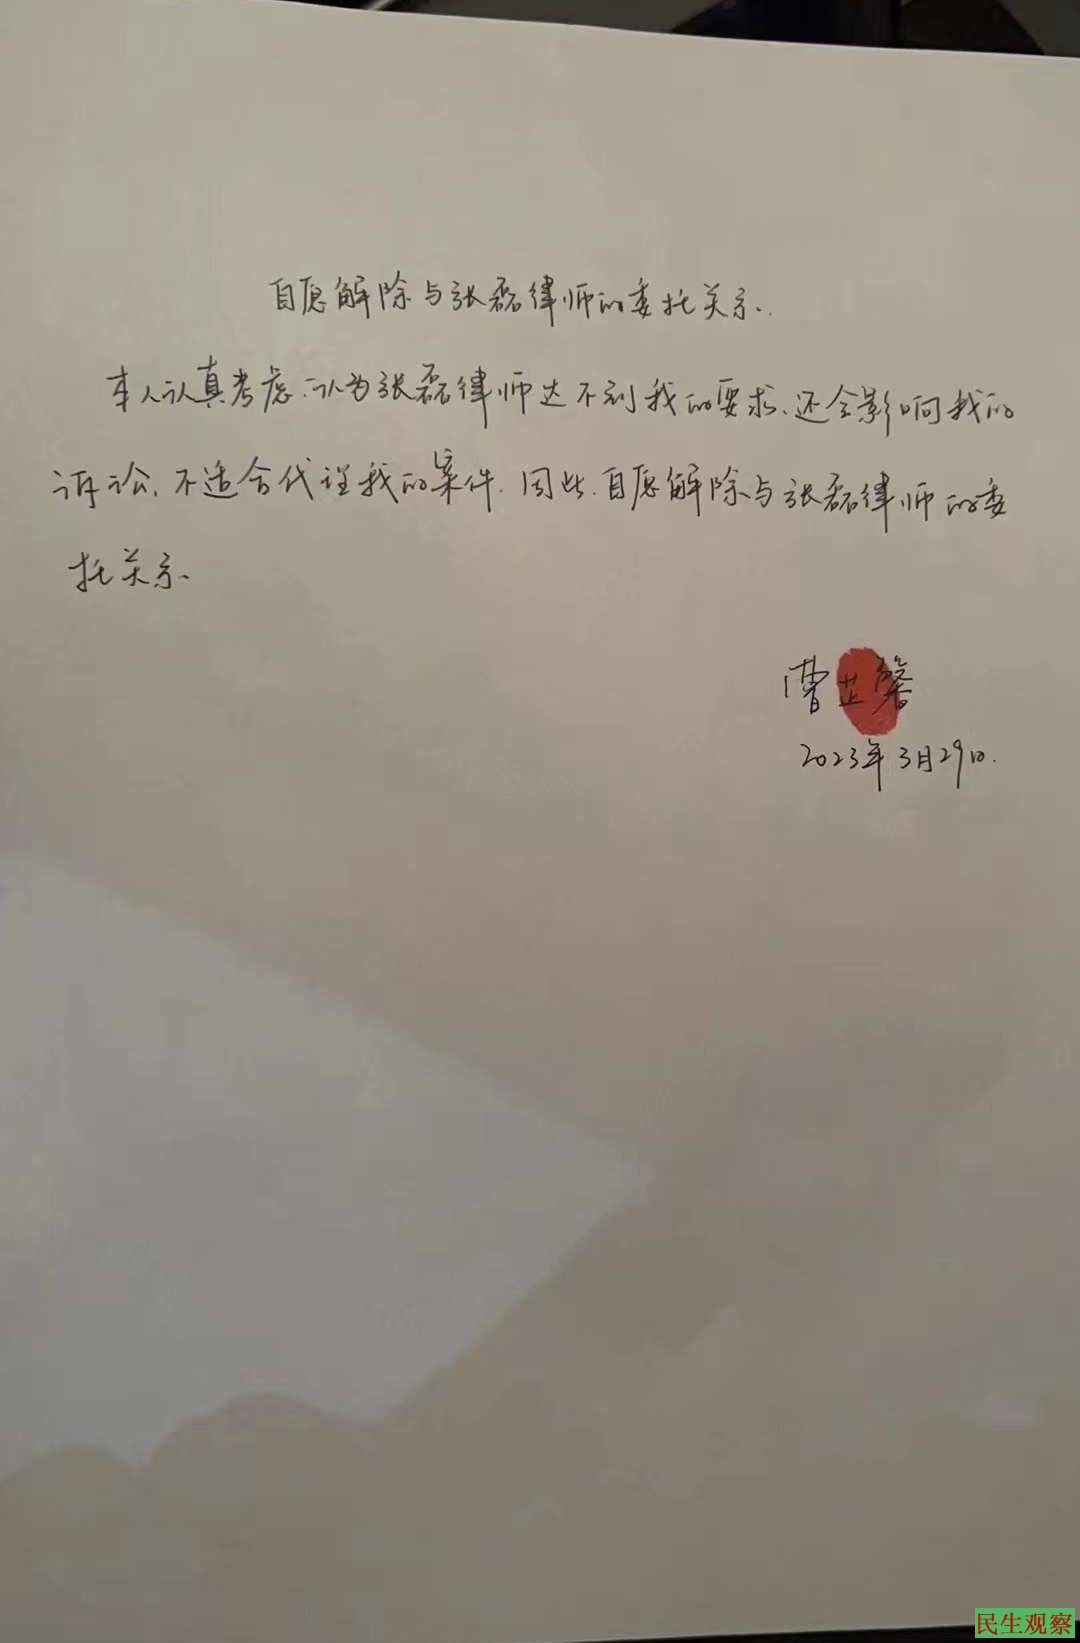 自愿解除与张磊律师的委托关系.
本人认真考虑,认为张磊律师达不到我的要求、还会影响我的
诉讼,不适合代理我的案件.因此.自愿解除与张磊律师的委
托关系、
曹芷馨
2023年3月29日.
民生观察